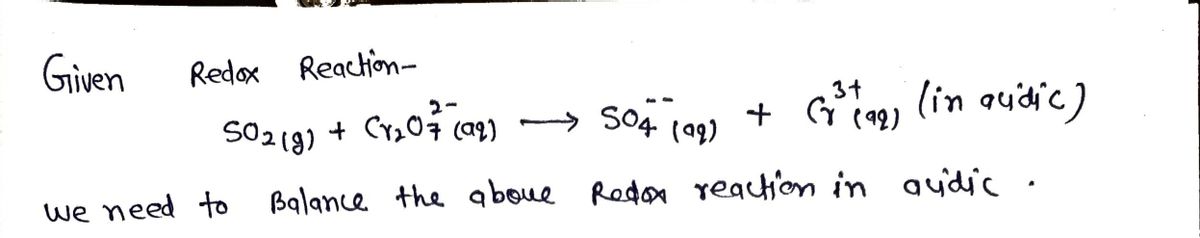 Given Redox Reaction-
SO₂(g) + Cr₂O₇²⁻(aq) ⟶ SO₄⁻⁻(aq) + Cr³⁺(aq) (in acidic)
we need to Balance the above Redox reaction in acidic .